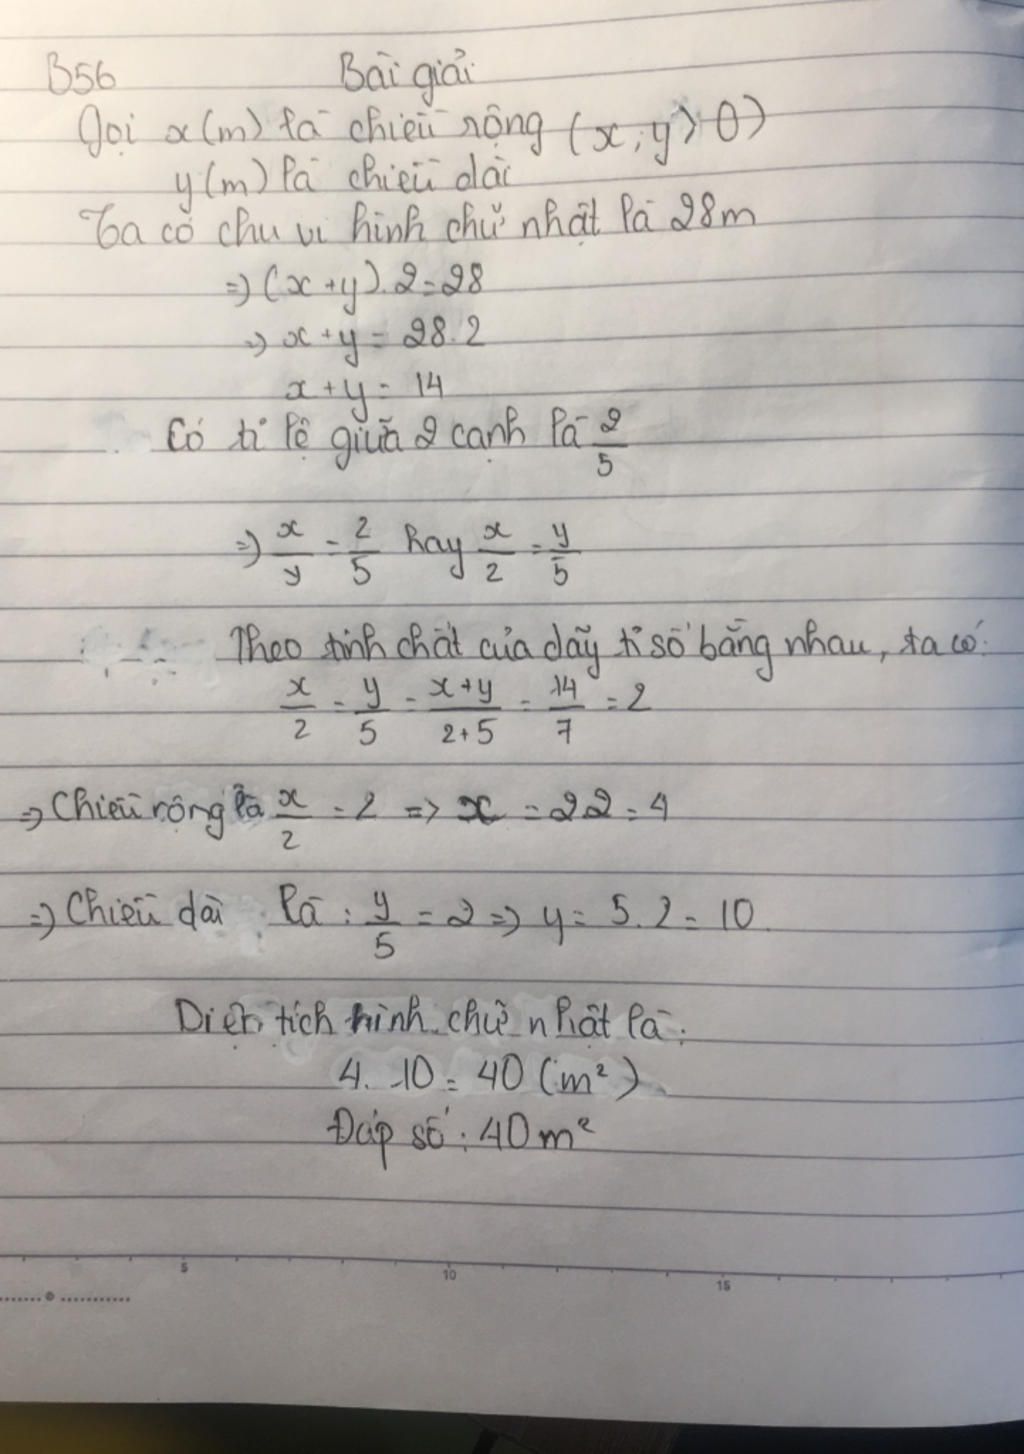 B56 Bài giải
Gọi x(m) là chiều rộng (x; y > 0)
y(m) là chiều dài
Ta có chu vi hình chữ nhật là 28m
=> (x+y).2=28
=> x+y = 28.2
x+y = 14
Có tỉ lệ giữa 2 cạnh là 2/5
=> x/y = 2/5 hay x/2 = y/5
Theo tính chất của dãy tỉ số bằng nhau, ta có:
x/2 = y/5 = x+y/2+5 = 14/7 = 2
=> Chiều rộng là x/2 = 2 => x = 22 = 4
=> Chiều dài là : y/5 = 2 => y = 5.2 = 10.
Diện tích hình chữ nhật là:
4.10 = 40 (m²)
Đáp số : 40m²
5 10 15